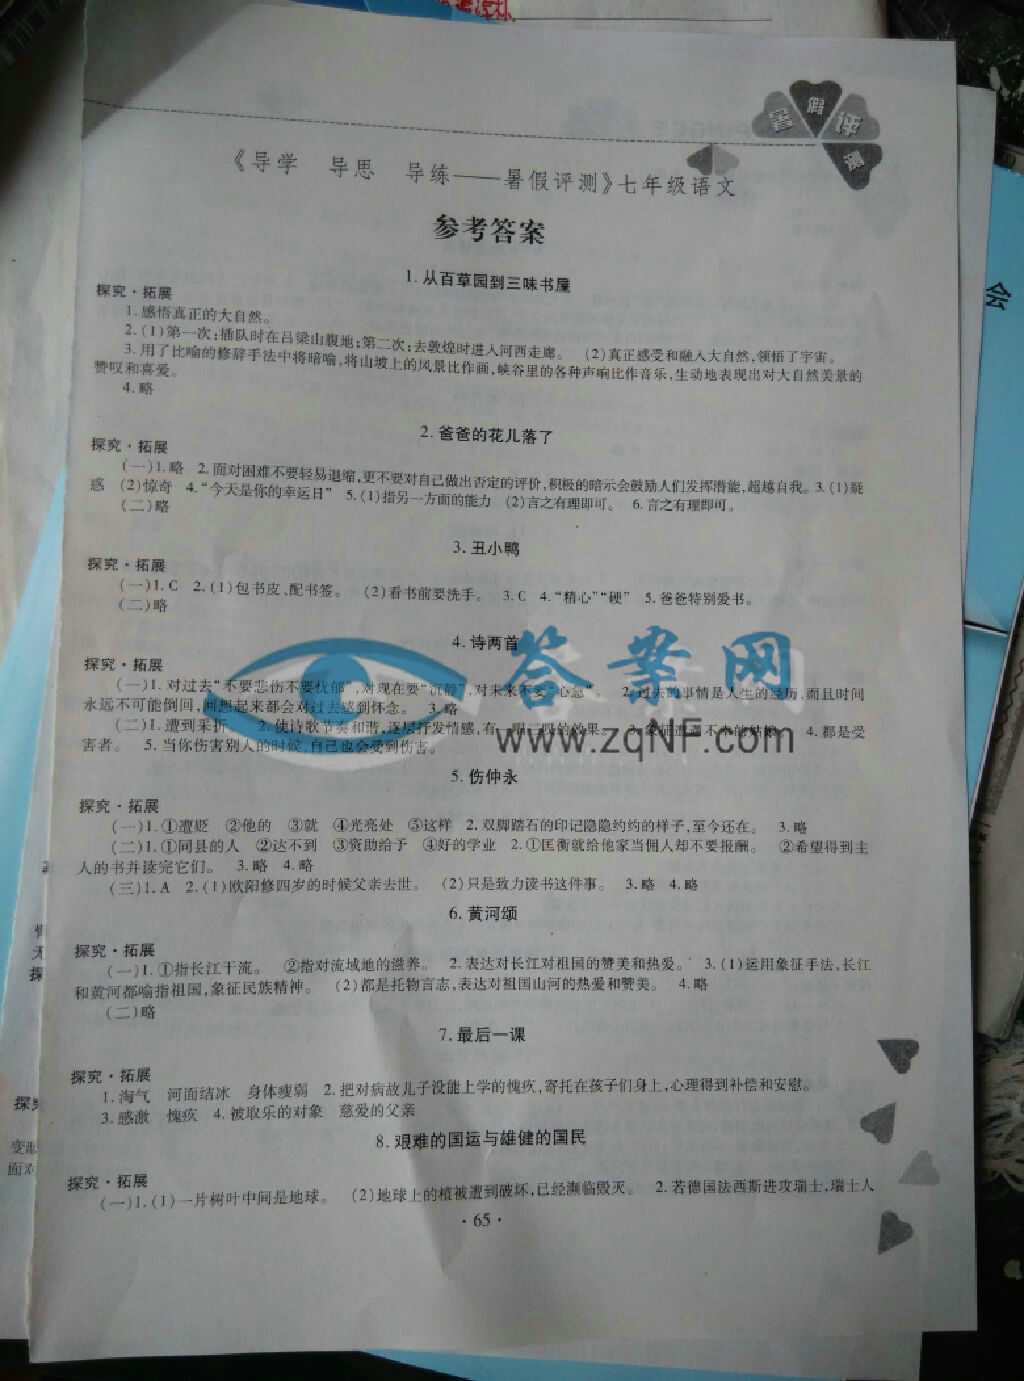 暑假评测
《导学 导思 导练——暑假评测》七年级语文
参考答案
1.从百草园到三味书屋
探究·拓展
1.感悟真正的大自然。
2.(1)第一次:插队时在吕梁山腹地;第二次:去敦煌时进入河西走廊。 (2)真正感受和融入大自然,领悟了宇宙。
3.用了比喻的修辞手法中将暗喻,将山坡上的风景比作画,峡谷里的各种声响比作音乐,生动地表现出对大自然美景的
赞叹和喜爱。
4.略
2.爸爸的花儿落了
探究·拓展
(一)1.略 2.面对困难不要轻易退缩,更不要对自己做出否定的评价,积极的暗示会鼓励人们发挥潜能,超越自我。3.(1)疑
惑 (2)惊奇 4.“今天是你的幸运日” 5.(1)指另一方面的能力 (2)言之有理即可。 6.言之有理即可。
(二)略
3.丑小鸭
探究·拓展
(一)1.C 2.(1)包书皮、配书签。 (2)看书前要洗手。 3.C 4.“精心”“硬” 5.爸爸特别爱书。
(二)略
4.诗两首
探究·拓展
(一)1.对过去“不要悲伤不要忧郁”,对现在要“镇静”,对未来不要“心急”。 2.过去的事情是人生的经历,而且时间
永远不可能倒回,回想起来都会对过去感到怀念。 3.略
(二)1.遭到采折。 2.使诗歌节奏和谐,逐层抒发情感,有一唱三叹的效果。 3.象征遭遇不幸的姑娘。 4.都是受
害者。 5.当你伤害别人的时候,自己也会受到伤害。
答案网
www.zqNF.com
5.伤仲永
探究·拓展
(一)1.①遭贬 ②他的 ③就 ④光亮处 ⑤这样 2.双脚踏石的印记隐隐约约的样子,至今还在。 3.略
(二)1.①同县的人 ②达不到 ③资助给予 ④好的学业 2.①匡衡就给他家当佣人却不要报酬。 ②希望得到主
人的书并读完它们。 3.略 4.略
(三)1.A 2.(1)欧阳修四岁的时候父亲去世。 (2)只是致力读书这件事。 3.略 4.略
6.黄河颂
探究·拓展
(一)1.①指长江干流。 ②指对流域地的滋养。 2.表达对长江对祖国的赞美和热爱。 3.(1)运用象征手法,长江
和黄河都喻指祖国,象征民族精神。 (2)都是托物言志,表达对祖国山河的热爱和赞美。 4.略
(二)略
7.最后一课
探究·拓展
1.淘气 河面结冰 身体瘦弱 2.把对病故儿子没能上学的愧疚,寄托在孩子们身上,心理得到补偿和安慰。
3.感激 愧疚 4.被取乐的对象 慈爱的父亲
8.艰难的国运与雄健的国民
探究·拓展
(一)1.(1)一片树叶中间是地球。 (2)地球上的植被遭到破坏,已经濒临毁灭。 2.若德国法西斯进攻瑞士,瑞士人
·65·
会
无
探
探究
面对